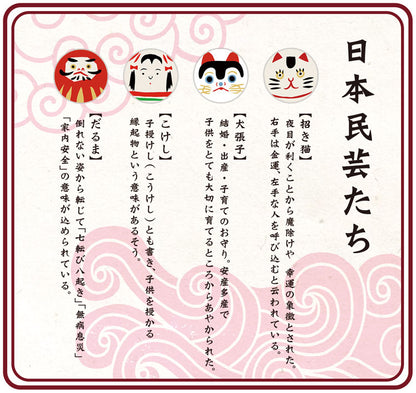 日本民芸たち
【招き猫】
夜目が利くことから魔除けや 幸運の象徴とされた。
右手は金運、左手な人を呼び込むと云われている。
【犬張子】
結婚・出産・子育てのお守り。安産多産で
子供をとても大切に育てるところからあやかられた。
【こけし】
子授けし(こうけし)とも書き、子供を授かる
縁起物という意味があるそう。
【だるま】
倒れない姿から転じて「七転び八起き」「無病息災」
「家内安全」の意味が込められている。